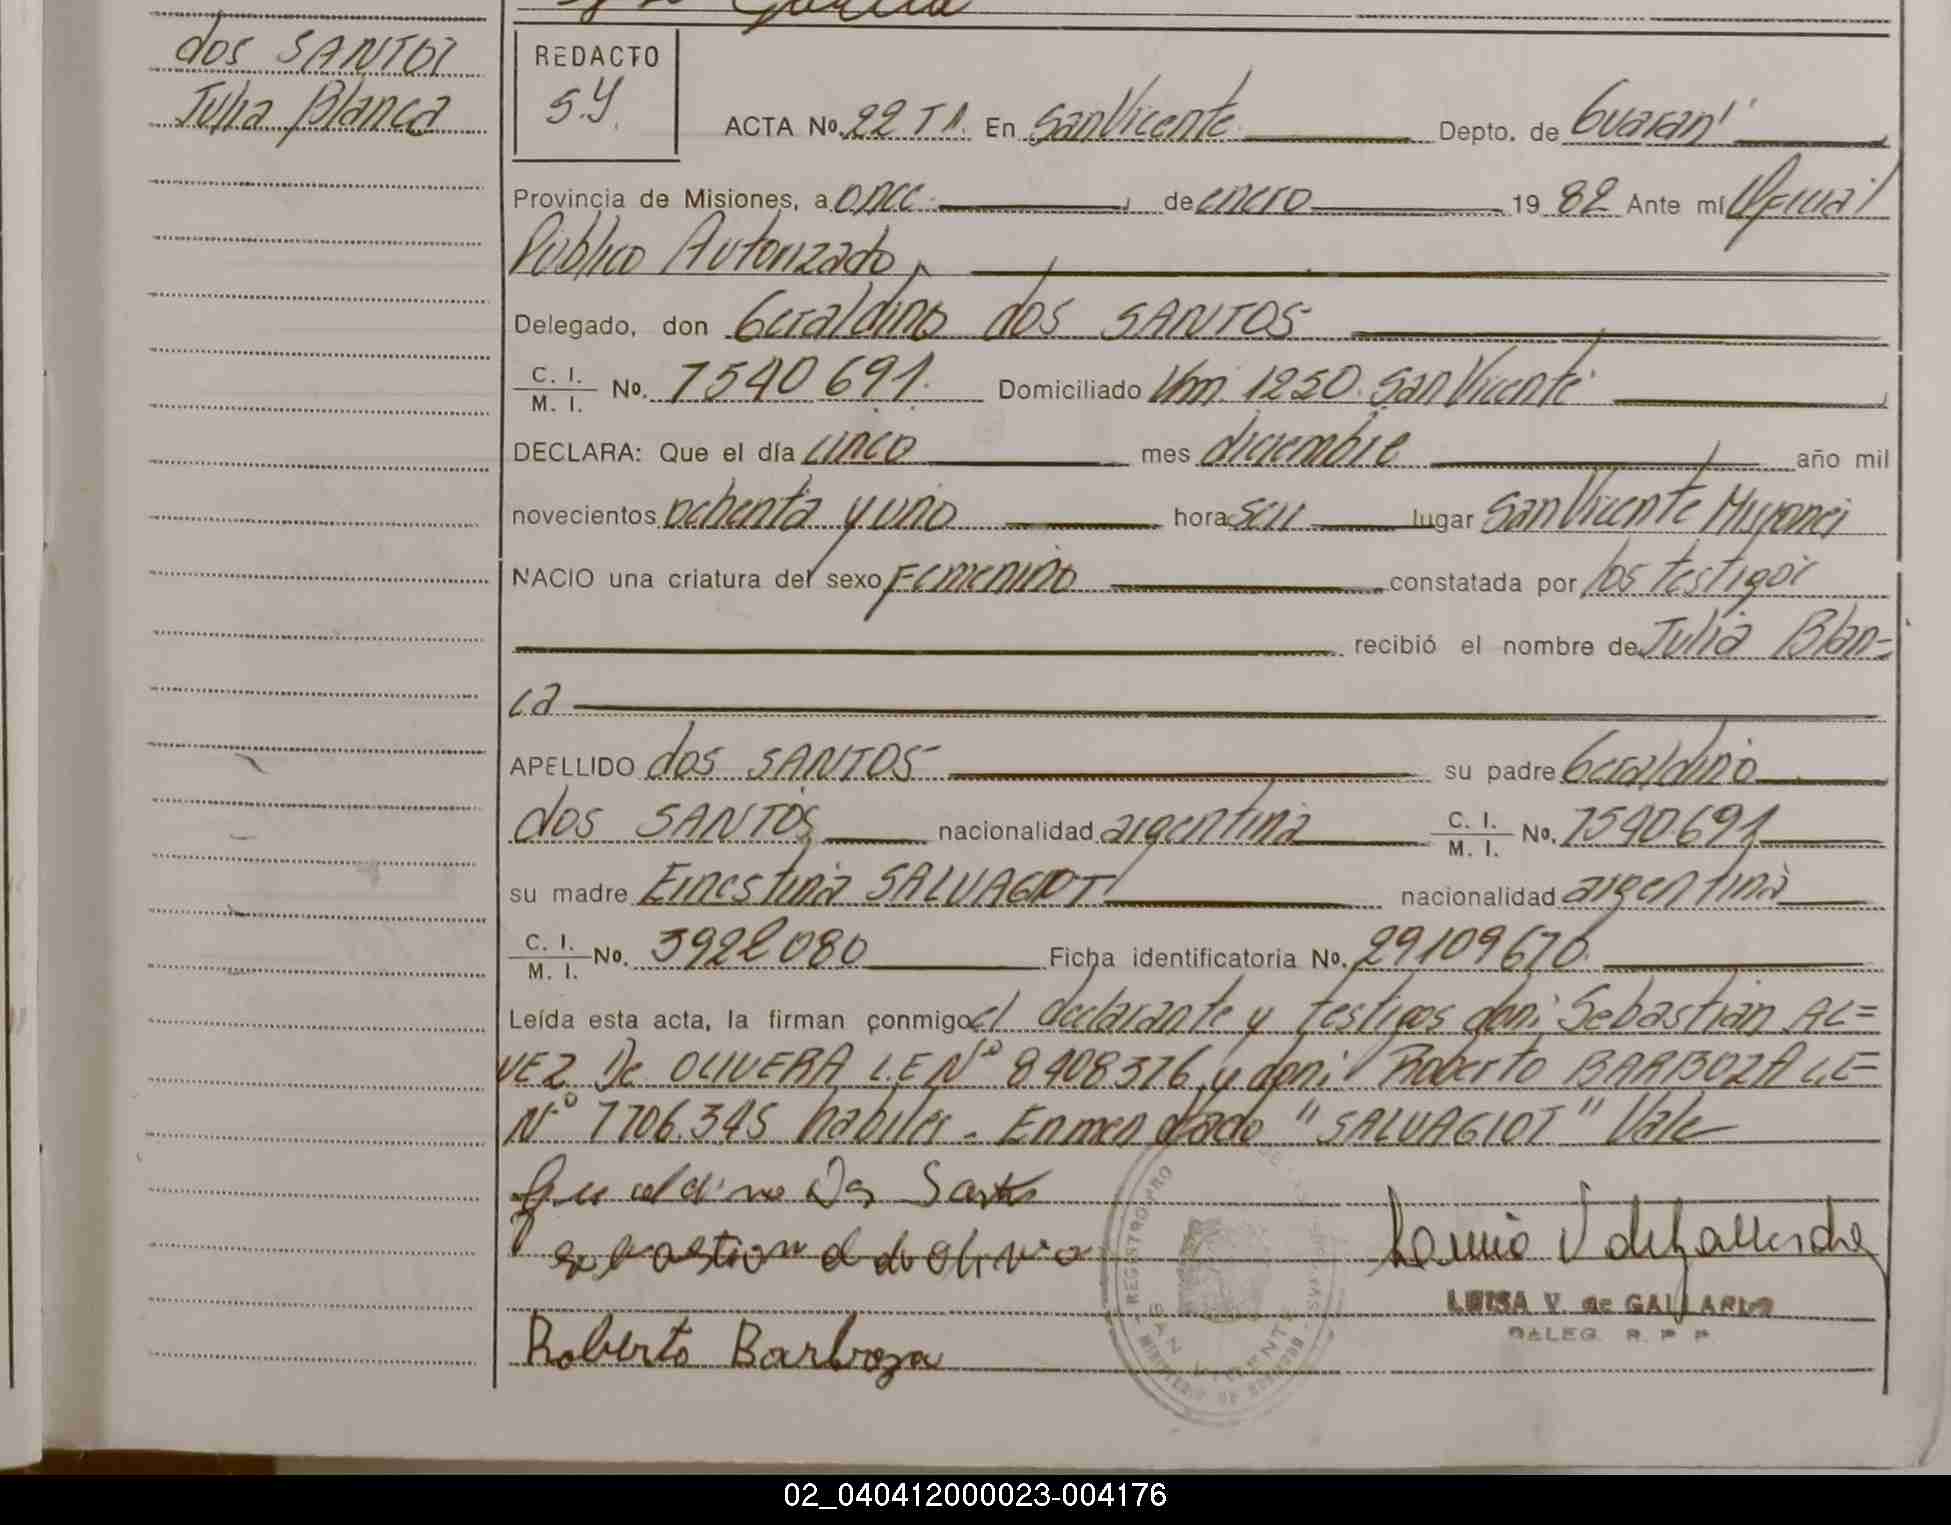 García
dos SANTOS
Julia Blanca
REDACTO
S.Y.
ACTA No. 22 T I. En San Vicente Depto. de Guaraní
Provincia de Misiones, a once de enero 19 82 Ante mí Oficial
Público Autorizado,
Delegado, don Geraldino dos SANTOS
C. I. / M. I. No. 7540691. Domiciliado Km. 1250. San Vicente
DECLARA: Que el día cinco mes diciembre año mil
novecientos ochenta y uno hora seis lugar San Vicente Misiones
NACIO una criatura del sexo Femenino constatada por los testigos
recibió el nombre de Julia Blan=
ca
APELLIDO dos SANTOS su padre Geraldino
dos SANTOS nacionalidad argentina C. I. / M. I. No. 7540.691
su madre Ernestina SALVAGIOT nacionalidad argentina
C. I. / M. I. No. 3922080 Ficha identificatoria No. 29109670.
Leída esta acta, la firman conmigo el declarante y testigos don: Sebastian AL=
VEZ De OLIVERA L.E Nº 8408376, y don: Roberto BARBOZA L.E=
Nº 7706.345 habiles. Enmendado "SALVAGIOT" Vale
Dos Santos
Roberto Barboza
REGISTRO PRO
SAN VICENTE
MINISTERIO DE GOBIERNO
LUISA V. de GALLARDO
DALEG. R. P. P.
02_040412000023-004176